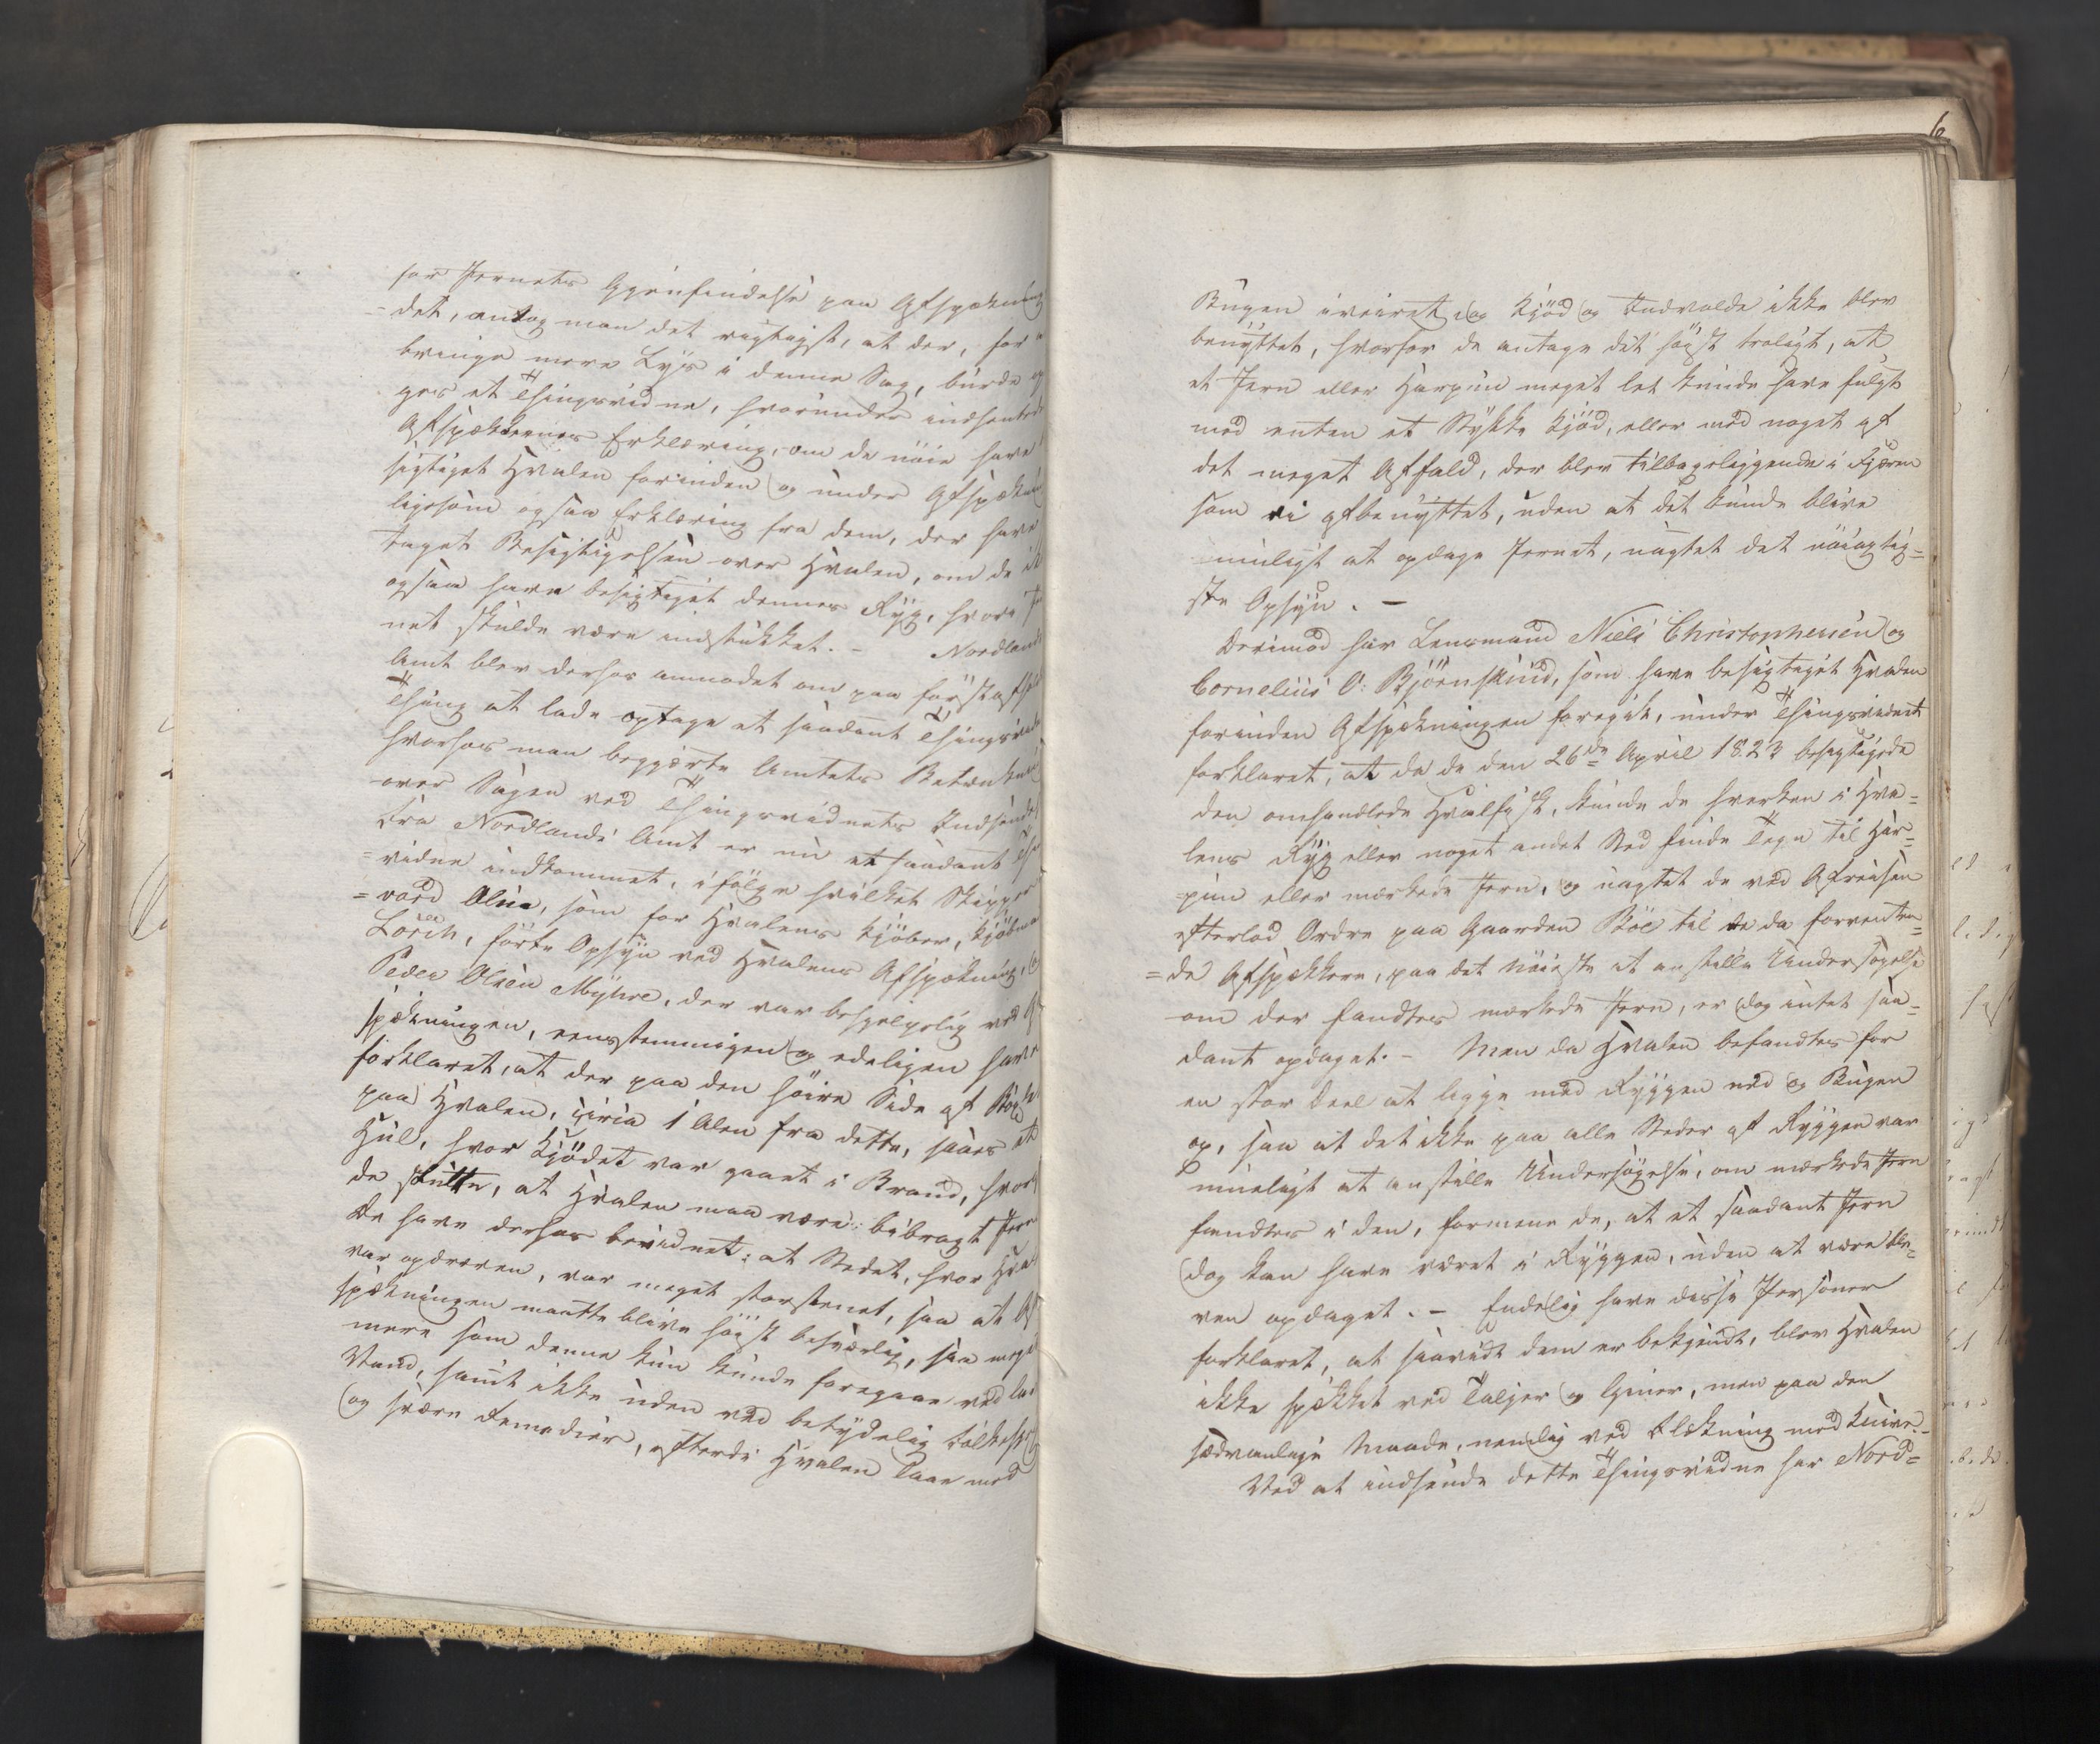 for Jernets Gjenfindelse paa Afspækning
det, antog man det rigtigst, at der, for
bringe mere Lys i denne Sag, burde
ges et Thingsvidne, hvorunder indhented
Afspækkernes Erklæring, om de nøie have
sigtiget Hvalen forinden og under Afspækni
ligesom ogsaa Erklæring fra dem, der have
taget Besigtigelsen over Hvalen, om de
ogsaa have besigtiget dennes Ryg, hvori
net skulde være indstukket. – Nordland
Amt blev derfor anmodet om paa først
Thing at lade optage et saadant Thingsvid
hvorhos man begjærte Amtets Betænkni
over Sagen ved Thingsvidnets Indsende
Fra Nordlands Amt er nu et saadant
= vidne indkommet, ifølge hvilket Skipper
= vard Olsen, som for Hvalens Kjøber, Kjøbm
Lorch, førte Opsyn ved Hvalens Afspækning,
Peder Olsen Myhre, der var behjelpelig ved
spækningen, eenstemmigen og edeligen have
forklaret, at der paa den høire Side af
paa Hvalen, circa 1 Alen fra dette, saaes et
Hul, hvor Kjødet var gaaet i Brand, hvor
de slutte, at Hvalen maa være bibragt Jern
De have derhos bevidnet: at Stedet, hvor Hval
var opdreven, var meget storstenet, saa at
spækningen maatte blive høist besværlig, saa meg
mere som denne kun kunde foregaae ved
Vand, samt ikke uden ved betydelig
og svære Remedier, efterdi Hvalen laae med
6
Bugen iveiret, og Kjød og Indvolde ikke blev
benyttet, hvorfor de antage det høist troligt, at
et Jern eller Harpun meget let kunde have fulgt
med enten et Stykke Kjød, eller med noget af
det meget Affald, der blev tilbageliggende i Fjæren
som ei afbenyttet, uden at det kunde blive
muligt at opdage Jernet, uagtet det nøiagtig=
ste Opsyn. –
Derimod har Lensmand Niels Christophersen og
Cornelius O: Bjørnskind, som have besigtiget Hvalen
forinden Afspækningen foregik, under Thingsvidnet
forklaret, at da de den 26de April 1823 besigtigede
den omhandlede Hvalfisk, kunde de hverken i Hva=
lens Ryg eller noget andet Sted finde Tegn til Har=
pun eller mærkede Jern, og uagtet de ved Afreisen
efterlod Ordre paa Gaarden Bøe til de da forvente
= de Afspækkere, paa det nøieste at anstille Undersøgelse
om der fandtes mærkede Jern, er dog intet saa=
dant opdaget. – Men da Hvalen befandtes for
en stor Deel at ligge med Ryggen ned og Bugen
op, saa at det ikke paa alle Steder af Ryggen var
mueligt at anstille Undersøgelse, om mærkede Jern
fandtes i den, formene de, at et saadant Jern
dog kan have været i Ryggen, uden at være ble=
ven opdaget. – Endelig have disse Personer
forklaret, at saavidt dem er bekjendt, blev Hvalen
ikke spækket ved Taljer og Giner, men paa den
sædvanlige Maade, nemlig ved Flækning med Knive. –
Ved at indsende dette Thingsvidne har Nord=